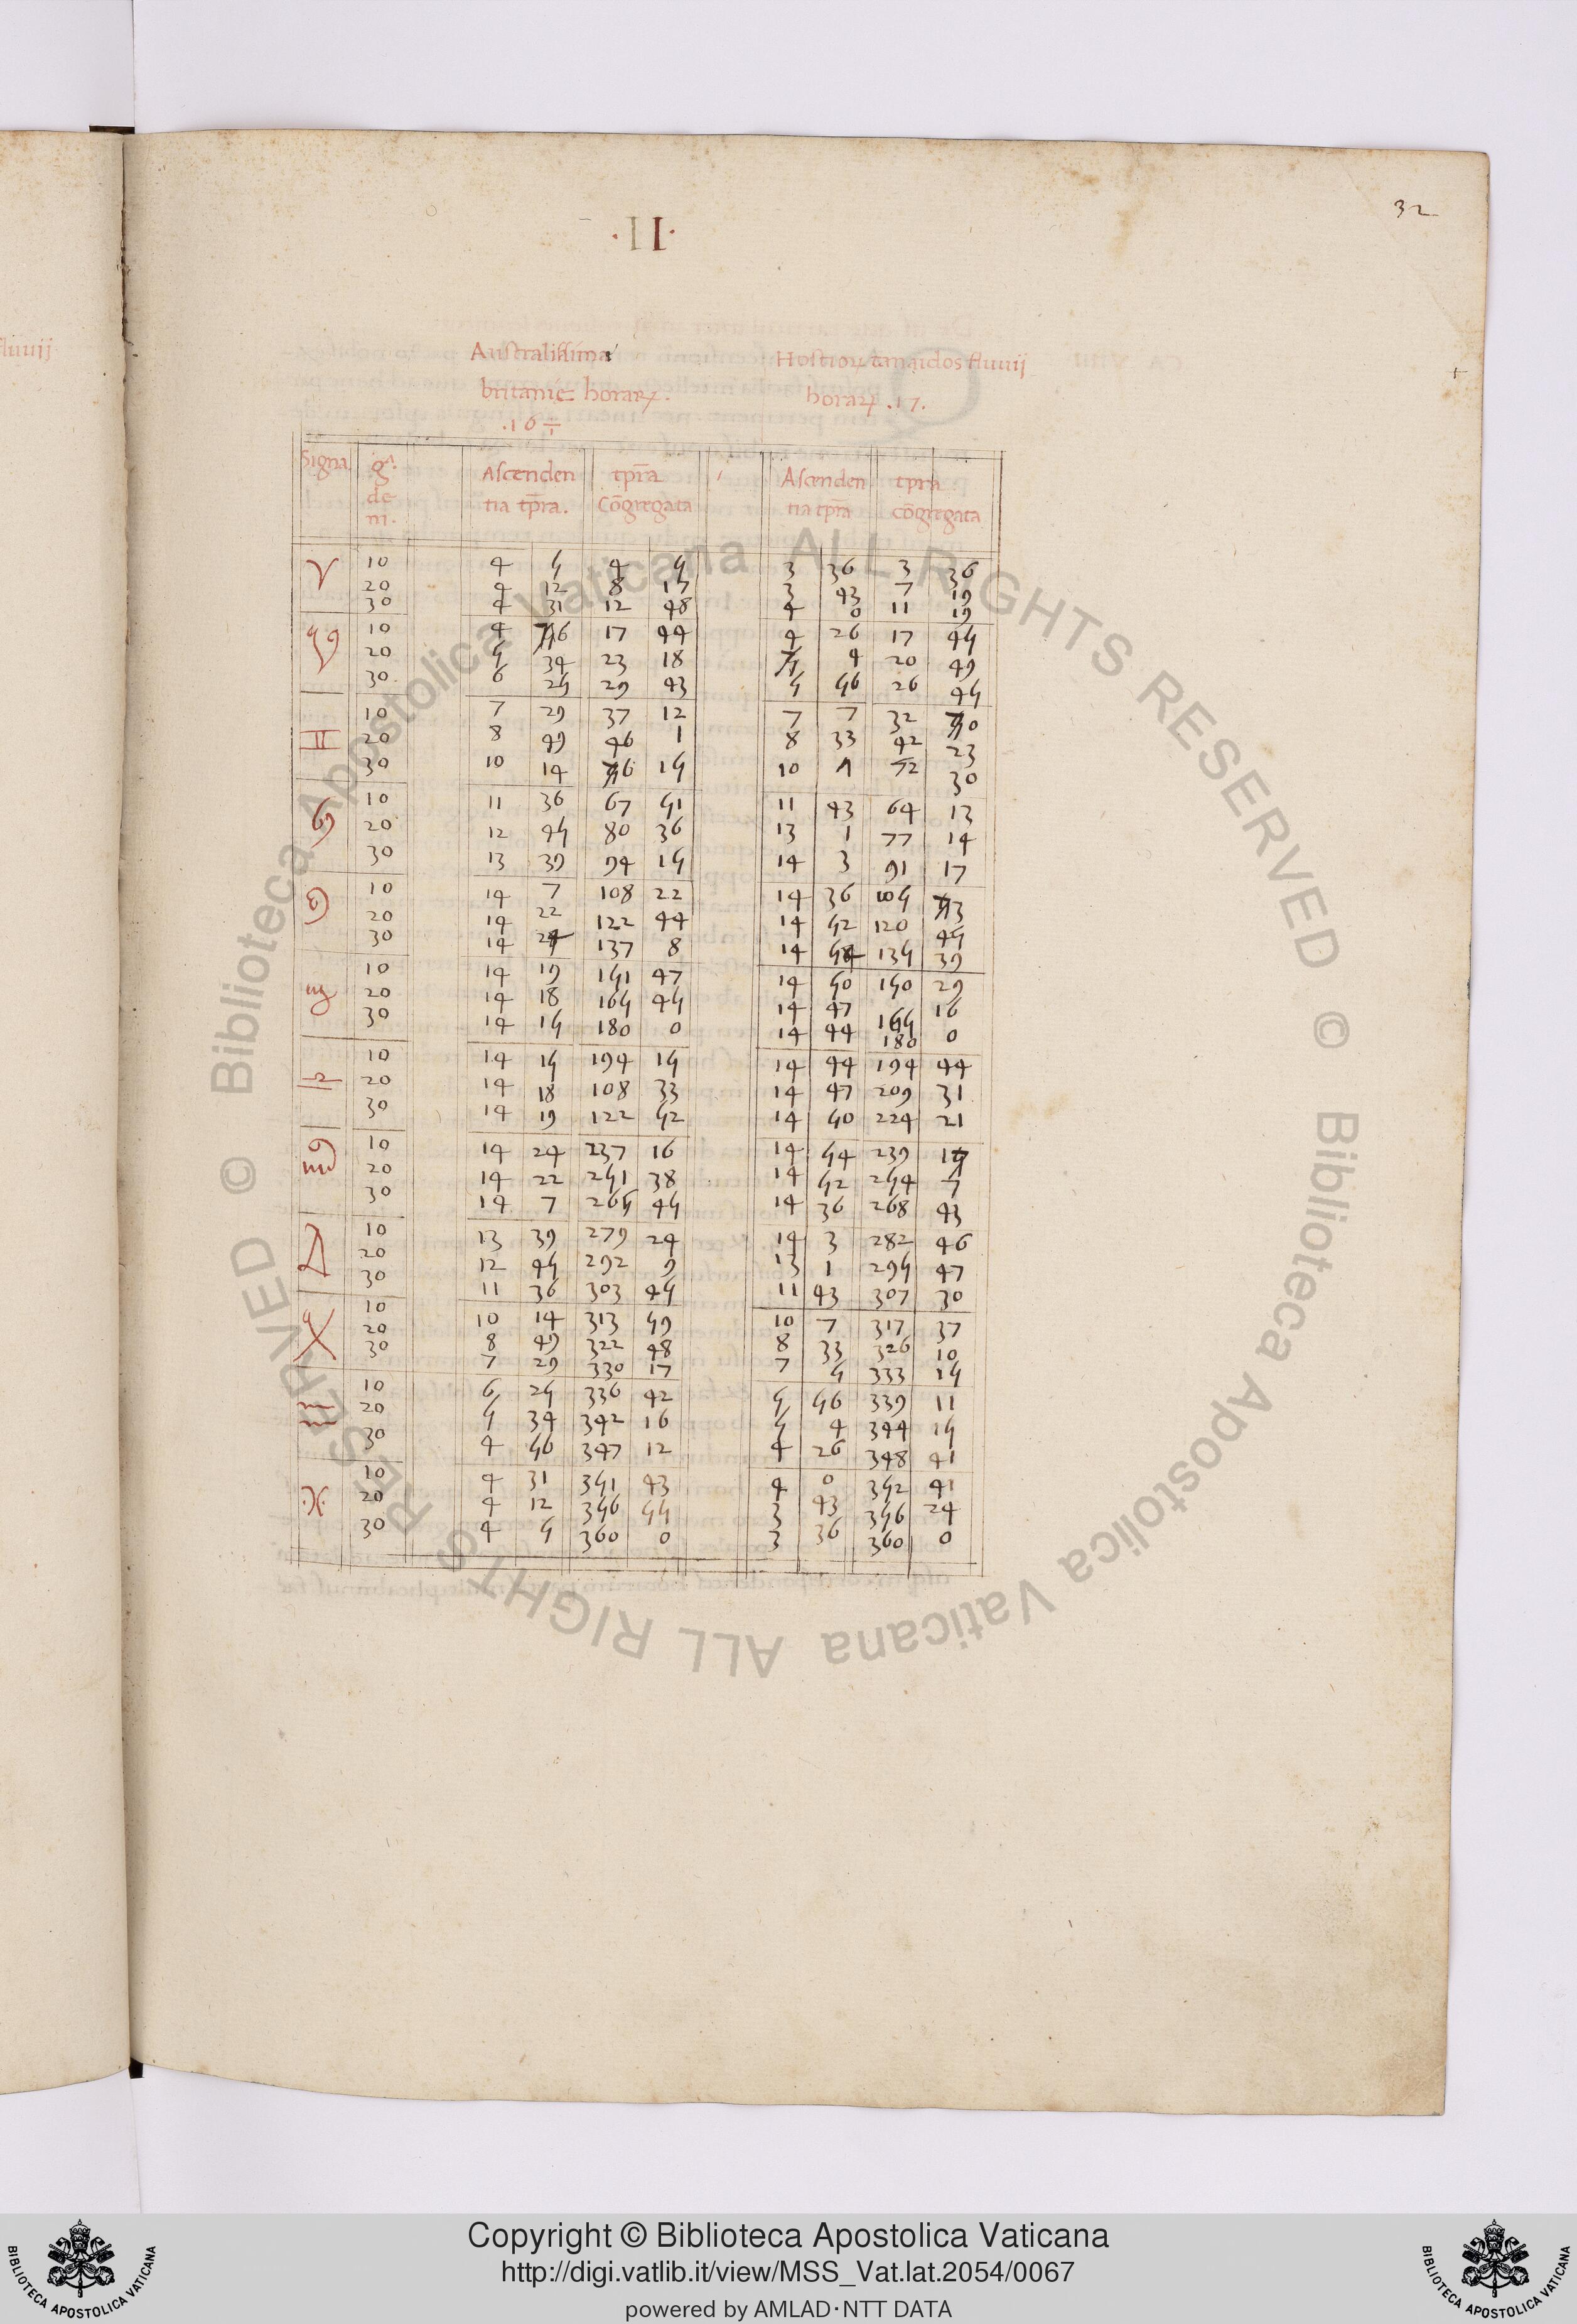 32
·II·
Australissima Hostioꝝ tanaidos fluuij
britanię horaꝝ. horaꝝ .17.
.16
Signa g. Ascenden tp̄ra Ascenden tpra
de tia tp̄ra. cōgregata tia tp̄ra cōgregata
m.
♈ 10 4 5 4 5 3 36 3 36
20 4 12 8 17 3 43 7 19
30 4 31 12 48 4 0 11 19
♉ 10 4 56 17 44 4 26 17 45
20 5 34 23 18 5 4 20 49
30 6 25 29 43 5 56 26 45
♊ 10 7 29 37 12 7 7 32 50
20 8 49 46 1 8 33 42 23
30 10 14 56 15 10 7 52 30
♋ 10 11 36 67 51 11 43 64 13
20 12 45 80 36 13 1 77 14
30 13 39 94 15 14 3 91 17
♌ 10 14 7 108 22 14 36 105 53
20 14 22 122 44 14 52 120 45
30 14 24 137 8 14 54 135 39
♍ 10 14 19 151 47 14 50 150 29
20 14 18 165 45 14 47 165 16
30 14 15 180 0 14 44 180 0
♎ 10 14 15 194 15 14 44 194 44
20 14 18 108 33 14 47 209 31
30 14 19 122 52 14 50 224 21
♏ 10 14 24 237 16 14 54 239 15
20 14 22 251 38 14 52 254 7
30 14 7 265 45 14 36 268 43
♐ 10 13 39 279 24 14 3 282 46
20 12 45 292 9 13 1 295 47
30 11 36 303 45 11 43 307 30
♑ 10 10 14 313 59 10 7 317 37
20 8 49 322 48 8 33 326 10
30 7 29 330 17 7 5 333 15
♒ 10 6 25 336 42 5 56 339 11
20 5 34 342 16 5 4 344 15
30 4 56 347 12 4 26 348 41
♓ 10 4 31 351 43 4 0 352 41
20 4 12 356 55 3 43 356 24
30 4 5 360 0 3 36 360 0
fluuij
© Biblioteca Apostolica Vaticana ALL RIGHTS RESERVED © Biblioteca Apostolica Vaticana ALL RIGHTS RESERVED
Copyright © Biblioteca Apostolica Vaticana
http://digi.vatlib.it/view/MSS_Vat.lat.2054/0067
powered by AMLAD·NTT DATA
BIBLIOTECA APOSTOLICA VATICANA
BIBLIOTECA APOSTOLICA VATICANA